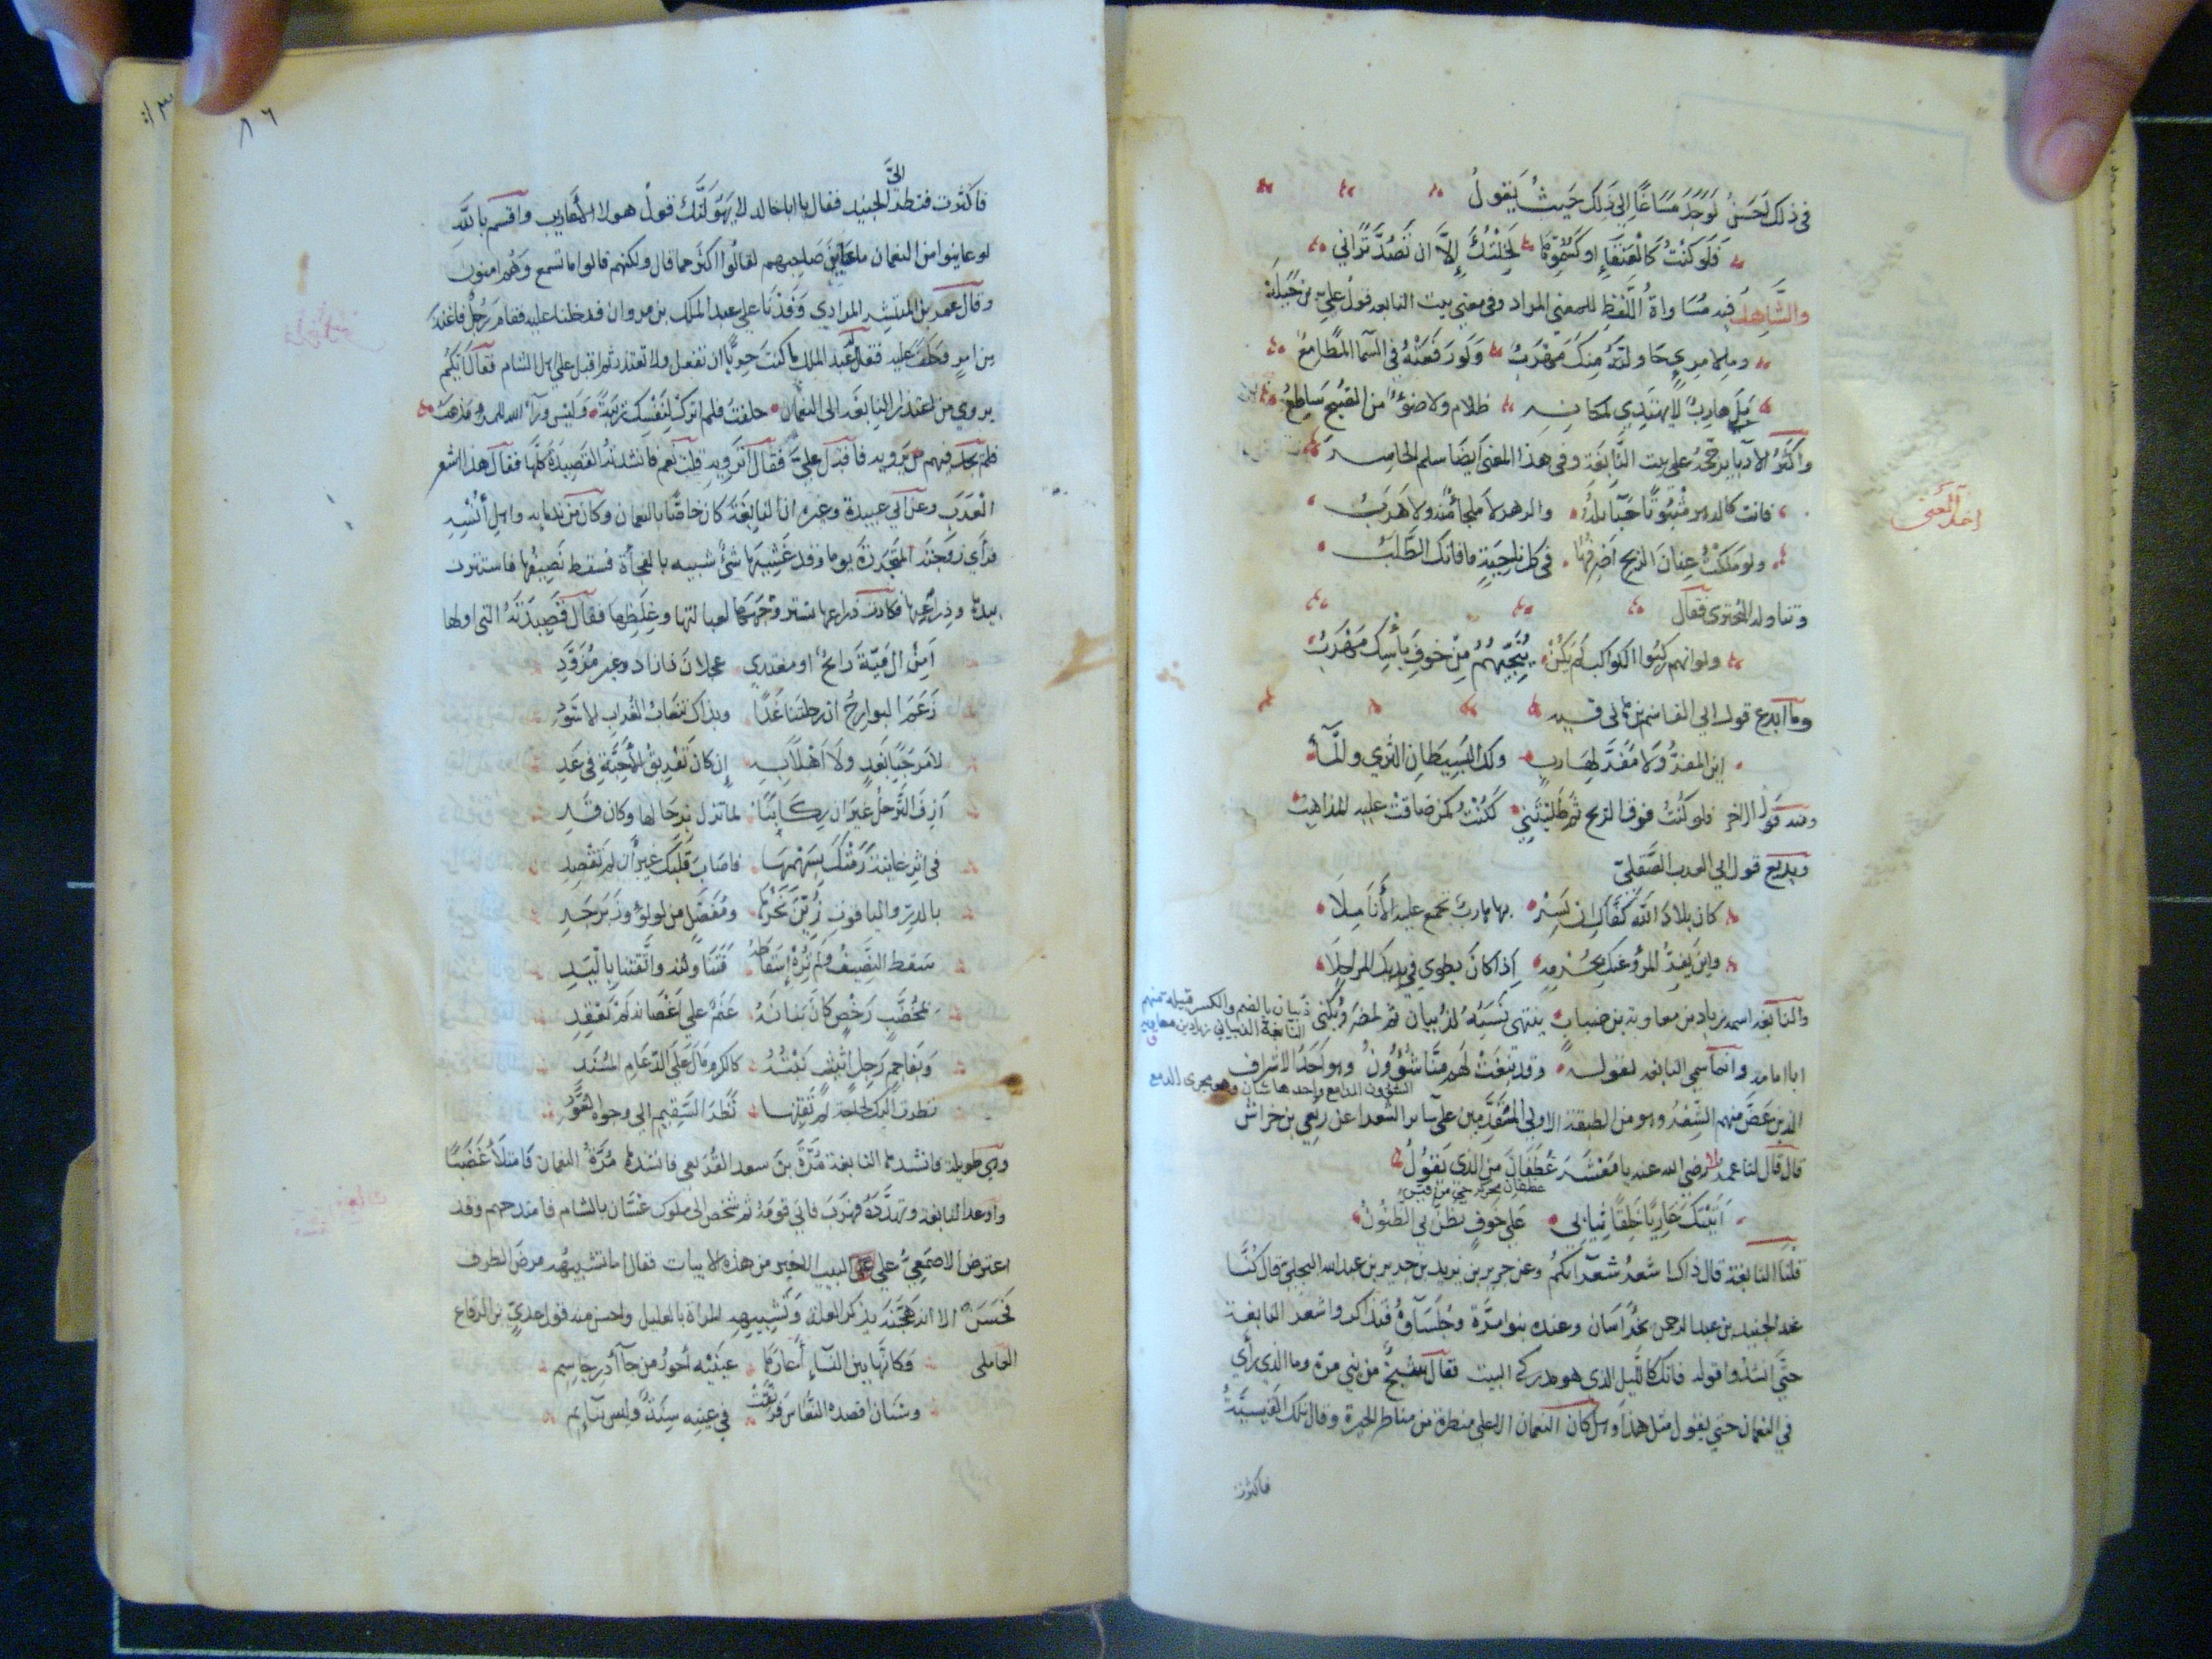 في ذلك لَحَسَنٌ لو جُدَ مَسَاغًا إلى ذلك حَيثُ يَقولُ
فَلَو كنْتُ كالعَنقَاءِ او كسُمُوِّهَا لَخِلْتُكَ إلاَّ ان تَصُدَّ تَرَاني
والشَّاهدُ فيه مُسَاواةُ اللَّفظِ للمعني المراد وفي معني بيت النابغه قولُ علي بن جَبَلَة
وما لامرِئٍ حَاولتَهُ مِنكَ مَهْرَبٌ وَلَو رَفَعَتْهُ في السَّما المَطَامِعُ
بَلَي هاربٌ لا يَهتَدي لمكانِهِ ظلام ولا ضَوْءٌ من الصُّبح سَاطعُ
واكثرُ الأدبا يرجّحهُ علي بيت النَّابِغَةِ وفي هذا المعني ايضًا سلم الخاسِر
اخذ المعني
فانت كالدهر مَبْثُوثًا حَبَائلُهُ والدهر لا مَلجأ منهُ ولا هَرَبُ
ولو مَلَكْتُ عِنانَ الريح اصْرِفُهَا في كل ناحِيَةٍ ما فاتَك الطَّلَبُ
وتناوله البحتري فقال
ولو انهم ركبُوا الكواكبَ لم يَكُنْ يُنَجِّيهُمُ مِنْ خوفِ بأسِكَ مَهْرَبُ
وما ابدع قول ابي القاسم بن هاني فيه
اين المفرُّ ولا مَفَرَّ لِهَاربٍ ولك البَسِيطَانِ الثَّري والمَاءُ
ومنه قول الاخر فلو كُنتُ فوق الريح ثم طَلَبْتَنِي لَكُنْتُ كمن ضاقتْ عليه المذاهبُ
وبديع قول ابي العرب الصَّقلي
كان بلادَ اللّه كَفَّاكَ ان يَسِرْ بها هاربٌ تجمع عليه الأنَامِلَا
واين يَفِرُّ المرءُ عنك بِجُرْمِهِ إذا كانَ يطوي في يديك المراحِلَا
والنابغه اسمه زياد بن معاوية بن ضباب ينتهي نَسَبُهُ لذبيان ثم لمضر ويُكنى
ذبيان بالضم والكسر قبيله منهم
النابغة الذبياني زياد بن معاويه
ابا امامة وانما سُمي النابغه لقوله وقد نَبَغَتْ لهم مِنَّا شُؤُونُ وهو احَدُ الأشراف
الشؤون المدامع واحدها شان وهو مجرى الدمع
الذين غَضَّ منهم الشِّعْرُ وهو من الطبقة الاولي المُتَقَدِّمين على سائر الشعرا عن ربعي بن خراش
قال قال لنا عمر رضي الله عنه يا مَعْشَرَ غَطَفَانَ من الذي يَقُولُ
غطفان محركة حي من قيس
أتَيْتُكَ عَارِيًا خَلِقًا ثِيابِي عَلي خَوفٍ تظنُّ بي الظنونُ
قلنا النابغة قال ذاك اشعرُ شعرائكُمُ وعن جرير بن يزيد بن جرير بن عبد الله البجلي قال كُنَّا
عند الجنيد بن عبد الرحمن بخُرَاسَان وعنده بنوا مرَّة وجُلَسَاؤُهُ فتذاكروا شعر النابغة
حتَّي انشدوا قوله فانك كالليل الذي هو مدركي البيت فقال شيخٌ من بني مرة وما الذي رأي
في النعمان حتي يقول مثل هذا وهل كان النعمان الا علي منظرة من مناظر الحيرة وقال تلك القيسيَّةُ
فاكثرت
٨٦
فاكثرت فنظر إلىَّ الجنيد فقال يا ابا خالد لا يَهُولَنَّك قولُ هولا الأعَاريب واقسم بالله
لو عاينوا من النعمان ما عايَنَ صَاحِبهم لقالُوا اكثر مما قال ولكنهم قالوا ما تسمع وَهُم امنون
وقال عمر بن المنتشر المرادي وَفَدْنَا علي عبد الملك بن مروان فدخلنا عليه فقام رَجُلٌ فاعتذر
من امرٍ وحَلَفَ عليه فقال له عبد الملك ما كنتَ حريًّا ان تفعل ولا تعتذر ثم اقبل علي اهل الشام فقال ايكُم
يروي من اعتذار النابغه الى النعمان حلفتُ فلم اترك لِنَفْسِكَ رِيبةً وَلَيْسَ ورَآءَ الله للمرءِ مَذهَبُ
فلم يجد فيهم من يرويه فاقبل عليَّ فقال أتَرويهِ قلت نعم فانشدتُهُ القَصِيدَةَ كلَّها فقال هذا اشعر
العَرَبِ وعن ابي عبيدة وغيره ان النابِغَةَ كان خاصًّا بالنعمان وكان من ندمائه واهل أُنْسِهِ
فرأي زَوجتَه المتجَرِّدَة يوما وقد غَشِيَهَا شئٌ شبيه بالفجأة فسقط نَصِيفُها فاستترت
بيدها وذراعِها فكادت ذراعها تستر وَجْهَهَا لعبالتها وغِلَظِها فقال قَصِيدَتَهُ التي اولها
أمِنْ آلِ مَيَّةَ رائحٌ او مغتدي عجلانَ ذا زاد وغير مُزَوَّدِ
زَعَمَ البوارحُ ان رحلتنا غَدًا وبذاك تنعابُ الغُرابِ الاسْوَدِ
لا مَرحَبًا بِغَدٍ ولا أهْلًا بِهِ إن كان تَفْرِيقُ الأحِبَّةِ في غَدِ
أزِفَ التَّرَحُّلُ غيرَ ان رِكَابَنَا لما تزل برحَالها وكان قَدِ
في اثرِ غانيةٍ رَمَتْكَ بِسَهْمِهَا فاصَابَ قَلْبَكَ غيرَ أن لم تقْصِدِ
بالدرّ والياقوتِ زُيِّنَ نَحْرُهَا ومُفَصَّلٍ من لولؤٍ وزَبَرجَدِ
سَقطَ النَّصِيفُ ولم تُرِدْ إسْقَاطَهُ فَتَنَاولَتْهُ واتَّقَتْنَا بِاليَدِ
بمُخَضَّبٍ رَخْصٍ كأنَّ بَنانَهُ عَنَمٌ علي اغْصَانه لم يُعْقَدِ
وبفاحِمٍ رَجِلٍ أثِيثٍ نَبْتُهُ كالكرمِ مَالَ عَلَي الدِّعَامِ المُسْنَدِ
نظرت اليك لحاجَةٍ لم تَقْضِها نَظَرَ السَّقِيمِ الي وجوه العُوَّدِ
وهي طويلة فانشدها النابغة مُرَّةَ بنَ سعد القُرَيعي فانشدها مُرَّةُ النعمانَ فامتلأ غَضَبًا
وأوعدَ النابغه وتهدَّدَهُ فهَرَبَ فاتي قومَهُ ثم شَخَصَ الى ملوك غسَّان بالشام فامتدحهم وقد
اعترضَ الأصمَعِيُّ علي البيت الاخير من هذه الابيات فقال اما تشبيههُ مرضَ الطرف
فحَسَنٌ الا انه هَجَّنَهُ بذكر العلة وتشبيههِ المراة بالعليل واحسن منه قول عديّ بن الرقاع
العاملي وكانّها بين النسآءِ أعارَهَا عينَيْهِ أحورُ من جآذرِ جاسِمِ
وسْنان اقصده النعَاس فرَنَّقَتْ في عينِه سِنَةٌ وليسَ بنَائِمِ